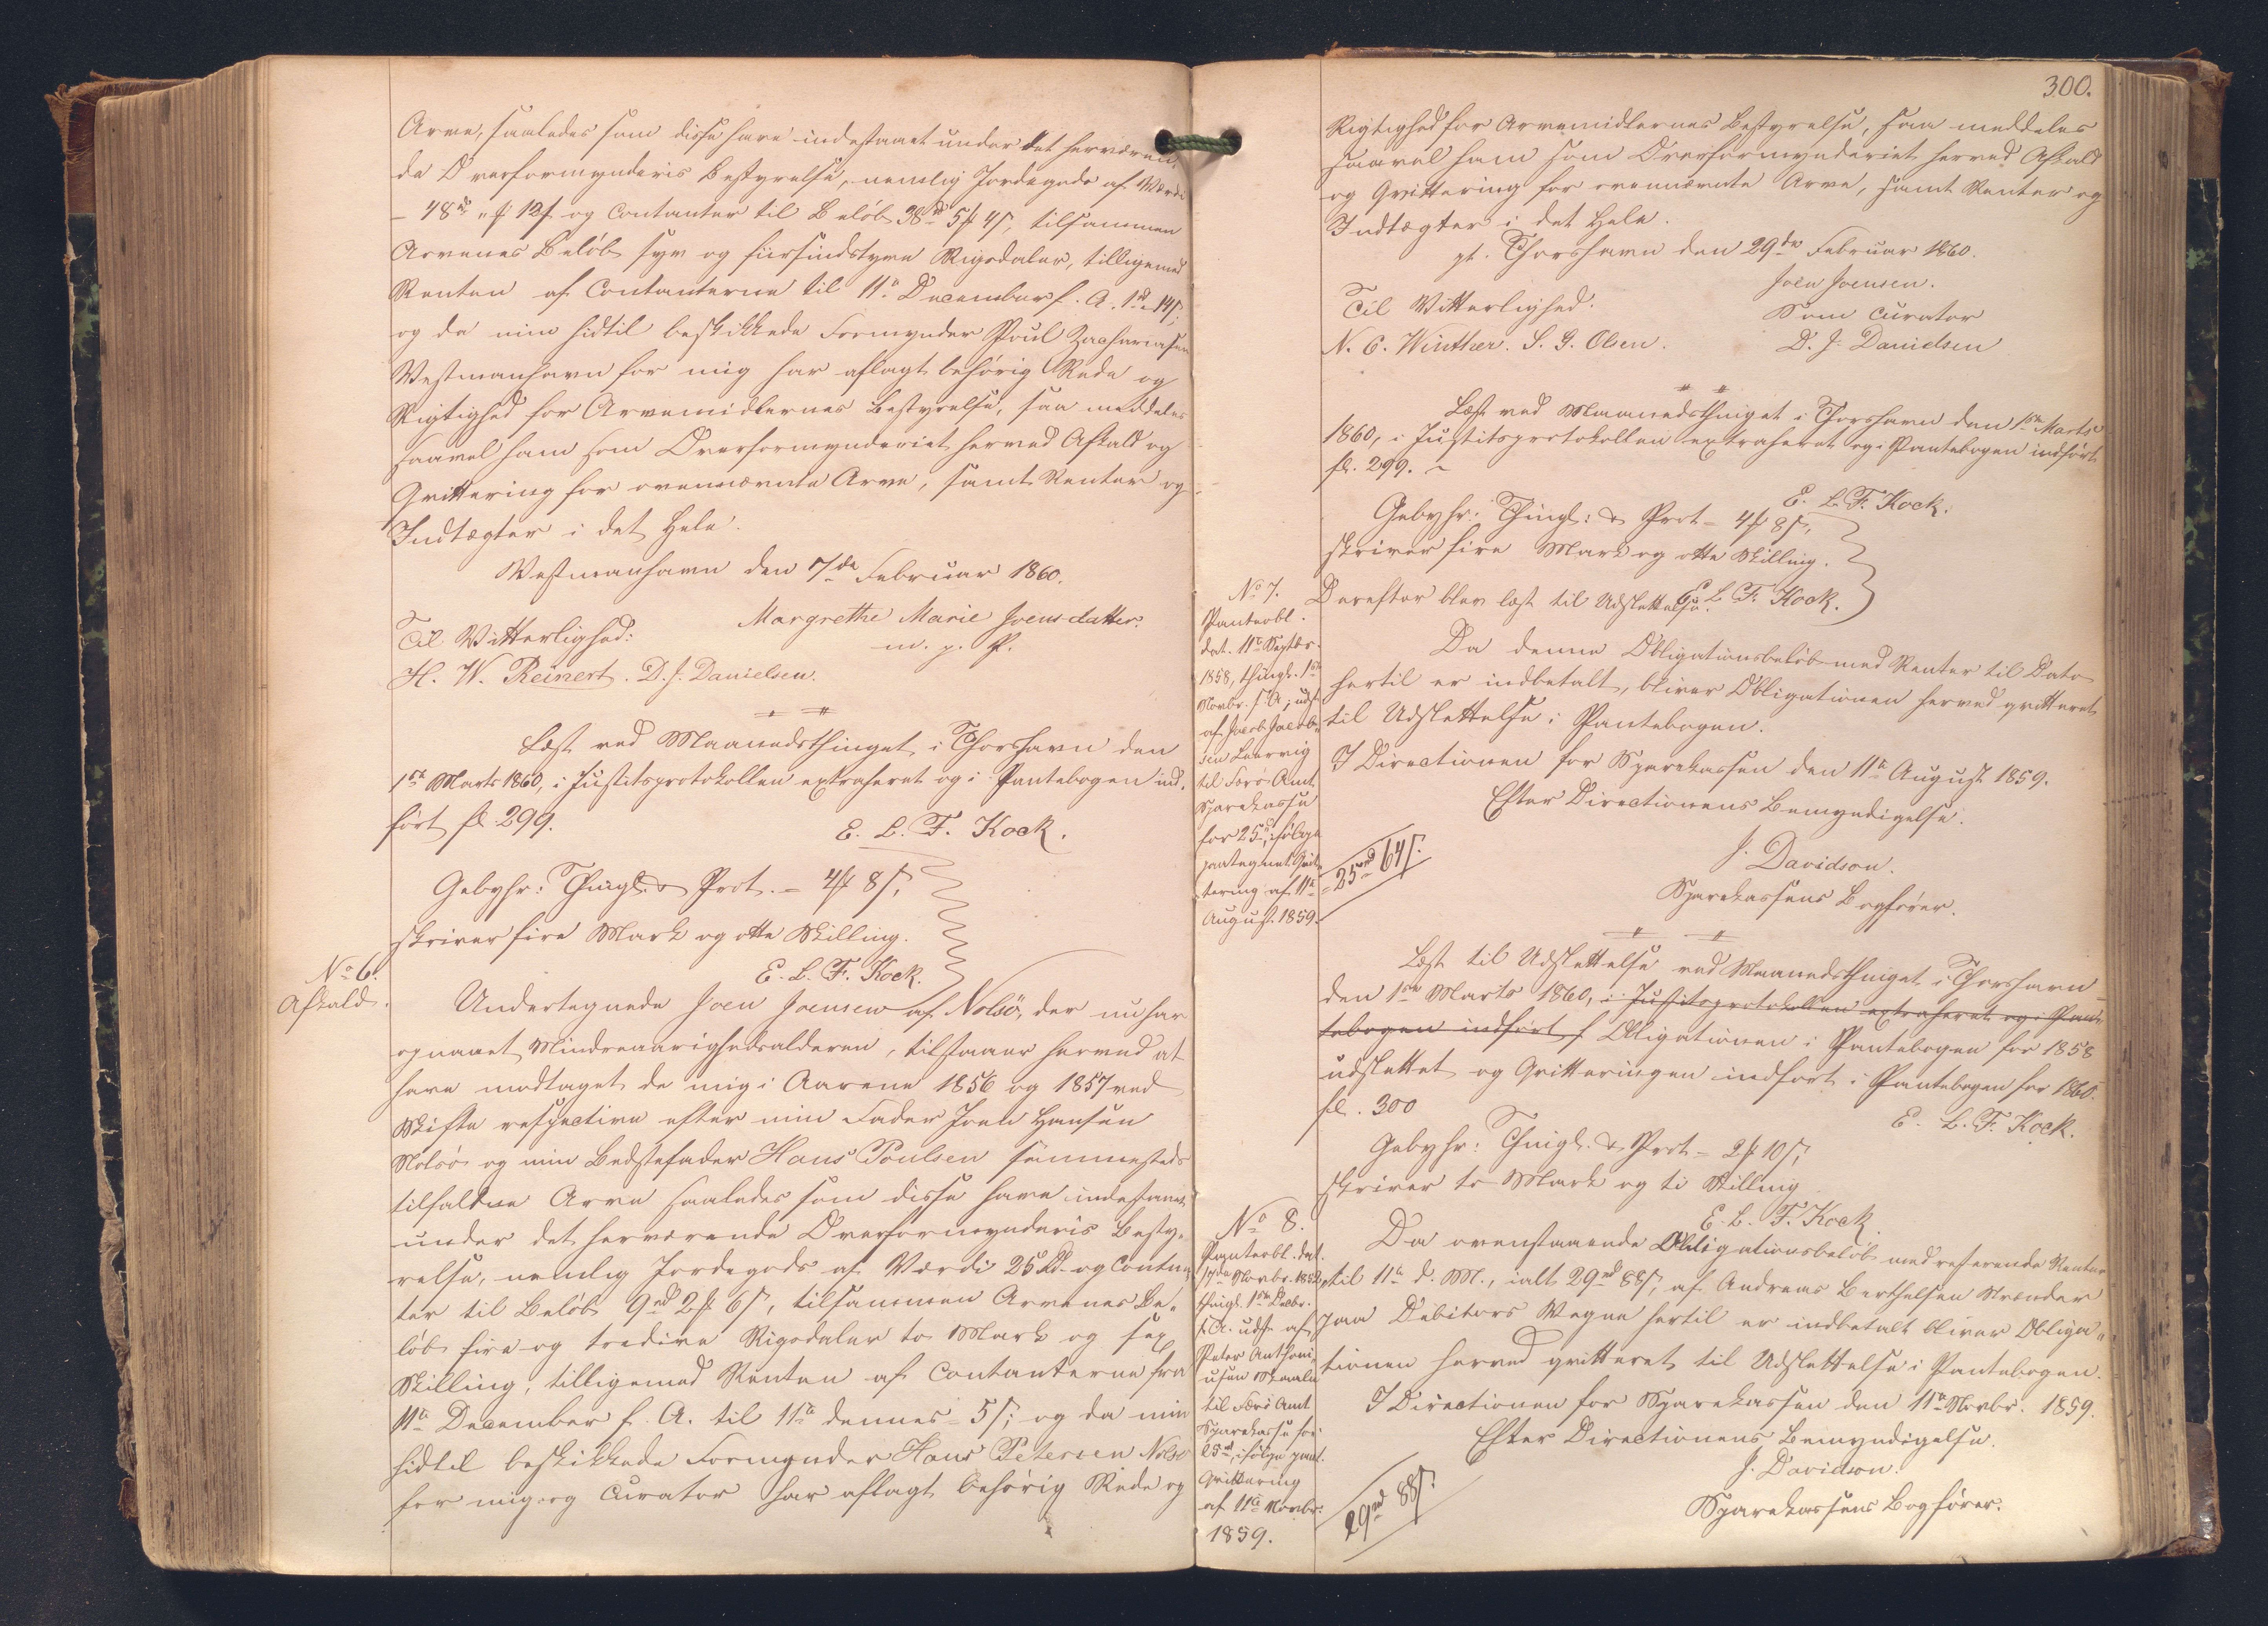 Arve, saaledes som disse have indestaaet under det herværen¬
de Overformynderies Bestyrelse, nemlig Jordegods af Værdi
- 48 rd „ ₰ 12 ß og Contanter til Beløb 38 rd 5 ₰ 4 ß, tilsammen
Arvenes Beløb syv og fiirsindstyve Rigsdaler, tilligemed
Renten af Contanterne til 11te December f. A. 1 rd 14 ß;
og da min hidtil beskikkede Formynder Poul Zachariasen
Westmanhavn for mig har aflagt behørig Rede og
Rigtighed for Arvemidlernes Bestyrelse, saa meddeles
saavel ham som Overformynderiet herved Afkald og
Qvittering for ovennævnte Arve, samt Renter og
Indtægter i det Hele.
Westmanhavn den 7de Februar 1860.
Margrethe Marie Joensdatter.
m. p. P.
Til Vitterlighed:
H. W. Reinert. D. J. Danielsen.
Læst ved Maanedsthinget i Thorshavn den
1ste Marts 1860, i Justitsprotokollen extraheret og i Pantebogen ind¬
ført fol. 299.
E. L. F. Kock.
Gebyhr: Thingl. & Prot. = 4 ₰ 8 ß,
skriver fire Mark og otte Skilling.
E. L. F. Kock.
No 6.
Afkald.
Undertegnede Joen Joensen af Nolsö, der nu har
opnaaet Mindreaarighedsalderen, tilstaaer herved at
have modtaget de mig i Aarene 1856 og 1857 ved
Skifte respective efter min Fader Joen Hansen
Nolsö og min Bedstefader Hans Poulsen sammesteds
tilfaldne Arve saaledes som disse have indestaaet
under det herværende Overformynderies Besty¬
relse, nemlig Jordegods af Værdi 25 Rd og Contan¬
ter til Beløb 9 rd 2 ₰ 6 ß, tilsammen Arvenes Be¬
løb fire og tredive Rigsdaler to Mark og sex
Skilling, tilligemed Renten af Contanterne fra
11te December f. A. til 11te dennes = 5 ß; og da min
hidtil beskikkede Formynder Hans Petersen Nolsö
for mig og Curator har aflagt behørig Rede og
300.
Rigtighed for Arvemidlernes Bestyrelse, saa meddeles
saavel ham som Overformynderiet herved Afkald
og Qvittering for ovennævnte Arve, samt Renter og
Indtægter i det Hele.
pt. Thorshavn den 29de Februar 1860.
Joen Joensen.
Til Vitterlighed:
Som Curator
N. C. Winther. S. G. Olsen.
D. J. Danielsen
Læst ved Maanedsthinget i Thorshavn den 1ste Marts
1860, i Justitsprotokollen extraheret og i Pantebogen indført
fol. 299.
E. L. F. Kock.
Gebyhr: Thingl: & Prot = 4 ₰ 8 ß,
skriver fire Mark og otte Skilling.
E. L. F. Kock.
Derefter blev læst til Udslettelse:
No 7.
Panteobl.
dat. 11te Septbr.
1858, thingl. 1ste
Novbr. s. A., udst.
af Jacob Jacob¬
sen Leervig
til Færö Amts
Sparekasse
for 25 rd, ifølge
paategnet Qvit¬
tering af 11te
August 1859.
Da denne Obligationsbeløb med Renter til Dato
hertil er indbetalt, bliver Obligationen herved qvitteret
til Udslettelse i Pantebogen.
I Directionen for Sparekassen den 11te August 1859.
Efter Directionens Bemyndigelse.
J. Davidson.
Sparekassens Bogfører.
= 25 rd 64 ß.
Læst til Udslettelse ved Maanedsthinget i Thorshavn
den 1ste Marts 1860, i Justitsprotokollen extraheret og i Pan¬
tebogen indført f Obligationen i Pantebogen for 1858
udslettet og Qvitteringen indført i Pantebogen for 1860.
fol. 300
E. L. F. Kock.
Gebyhr: Thingl. & Prot = 2 ₰ 10 ß,
skriver to Mark og ti Skilling
E. L. F. Kock.
No 8.
Panteobl. dat.
17de Novbr. 1852,
thingl. 1ste Decbr.
s. A. udst. af
Peter Anthoni¬
usen Skaale
til Færö Amts
Sparekasse for
25 rd, ifølge paat.
Qvittering
af 11te Novbr.
1859.
Da ovenstaaende Obligationsbeløb med resterende Renter
til 11te d. M., ialt 29 rd 88 ß, af Andreas Berthelsen Strender
paa Debitors Vegne hertil er indbetalt bliver Obliga¬
tionen herved qvitteret til Udslettelse i Pantebogen.
I Directionen for Sparekassen den 11te Novbr. 1859.
Efter Directionens Bemyndigelse.
J. Davidson.
Sparekassens Bogfører.
29 rd 88 ß.